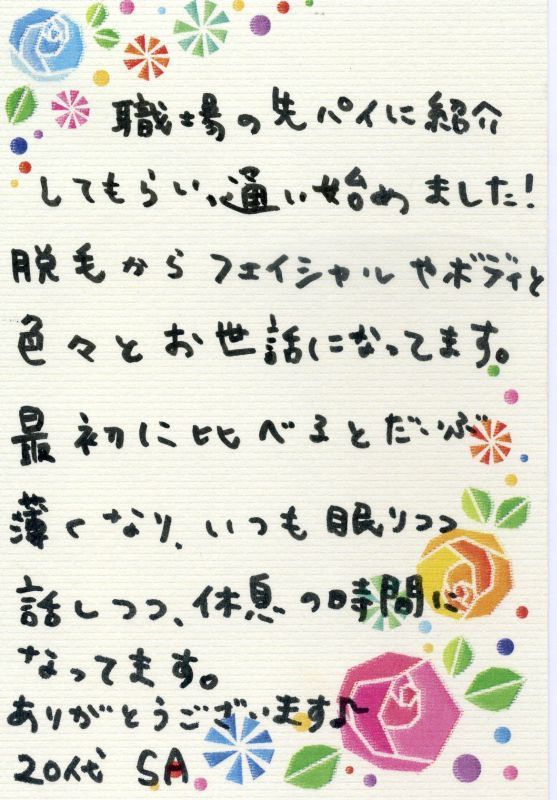 職場の先パイに紹介
してもらい、通い始めました!
脱毛からフェイシャルやボディと
色々とお世話になってます。
最初に比べるとだいぶ
薄くなり、いつも眠りつつ
話しつつ、休息の時間に
なってます。
ありがとうございます♪
20代 SA